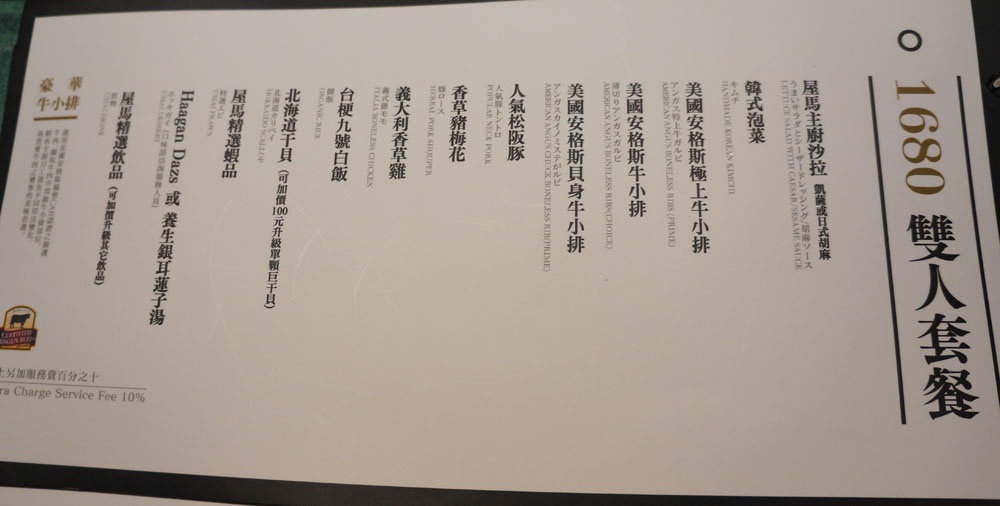 1680 雙人套餐
屋馬主廚沙拉 凱薩或日式胡麻
うまいサラダ とシーザードレッシング/胡麻ソース
LETTUCE SALAD WITH CAESAR/SESAME SAUCE
韓式泡菜
キムチ
HANDMADE KOREAN KIMCHI
美國安格斯極上牛小排
アンガス特上牛ガルビ
AMERICAN ANGUS BONELESS RIBS (PRIME)
美國安格斯牛小排
薄切りアンガスガルビ
AMERICAN ANGUS BONELESS RIBS(CHOICE)
美國安格斯貝身牛小排
AMERICAN ANGUS CHUCK BONELESS RIB(PRIME)
人氣松阪豚
人氣豚トントロ
POPULAR NECK PORK
香草豬梅花
豚ロース
HERBAL PORK SHOUPER
義大利香草雞
義式雞モモ
ITALIA BONELESS CHICKEN
台梗九號白飯
御飯
ORGANIC RICE
北海道干貝 (可加價100元升級單顆巨干貝)
北海道カリベイ
HOKKAIDO SCALLOP
屋馬精選蝦品
特選エビ
UMAI PRAWNS
Haagan Dazs 或 養生銀耳蓮子湯
UMAI DESSERT
屋馬精選飲品 (可加價升級其它飲品)
飲物
UMAI DRINK
豪華
牛小排
CERTIFIED
ANGUS BEEF
上另加服務費百分之十
ra Charge Service Fee 10%